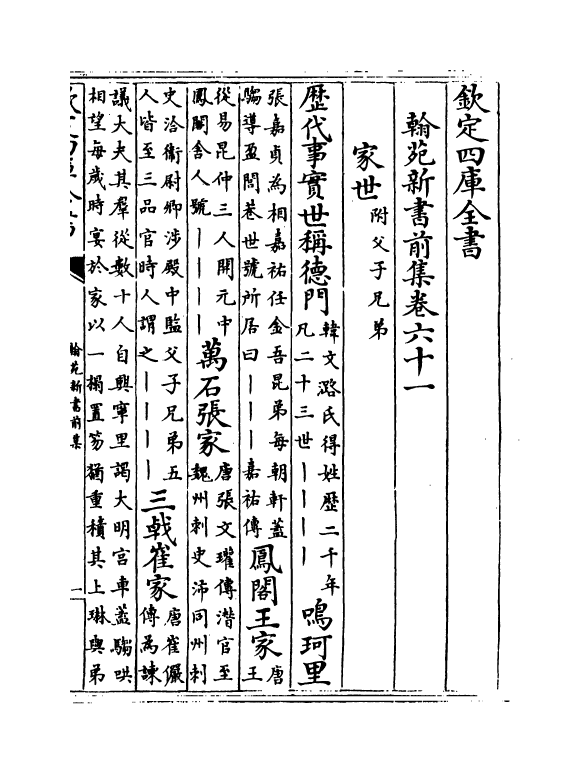 欽定四庫全書
翰苑新書前集卷六十一
家世附父子兄弟
歴代事實世稱德門韓文潞氏得姓歴二千年
凡二十三世丨丨丨丨鳴珂里
張嘉貞為相嘉祐任金吾昆弟每朝軒蓋
騶導盈閭巷世號所居曰丨丨丨丨嘉祐傳鳳閣王家唐
王
從易昆仲三人開元中
鳳閣舍人號丨丨丨丨萬石張家唐張文瓘傳潛官至
魏州刺史沛同州刺
史洽衛尉卿涉殿中監父子兄弟五
人皆至三品官時人謂之丨丨丨丨三戟崔家唐崔儼
傳為諫
議大夫其羣從數十人自興寧里謁大明宫車蓋騶哄
相望每歲時宴於家以一榻置笏猶重積其上琳與弟
翰苑新書前集
一